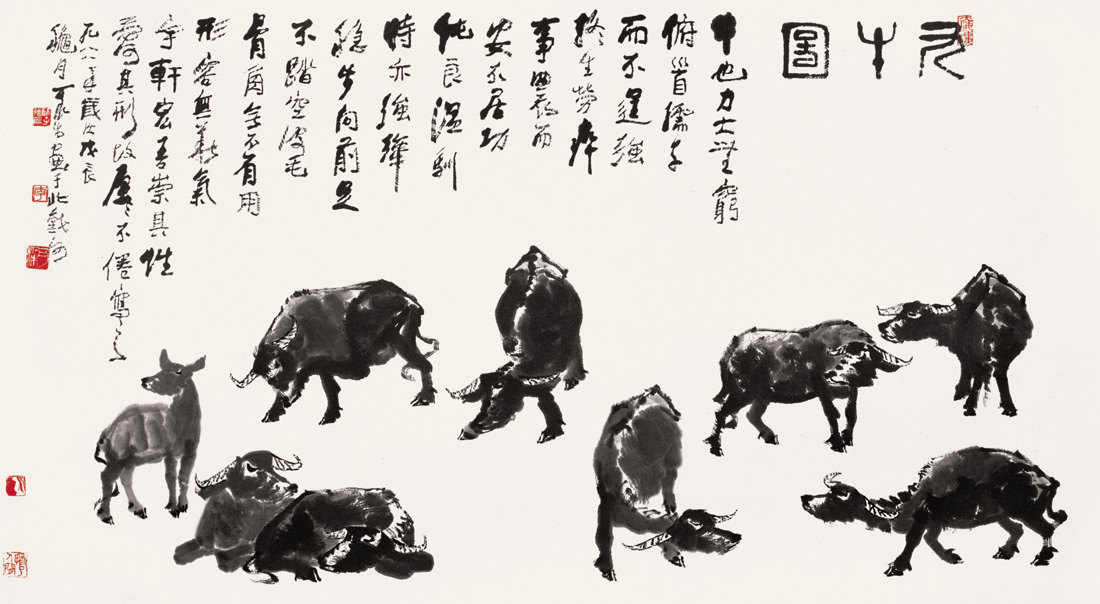 九牛圖
牛也力大无窮
俯首孺子
而不逞強
終生勞瘁
事農而
安不居功
純良溫馴
時亦強犟
穩步向前足
不踏空皮毛
骨角无不有用
形容無華氣
宇軒宏吾崇其性
愛其形故屢々不倦寫之
一九八八年歲次戊辰
龝月可染畫于北戴河